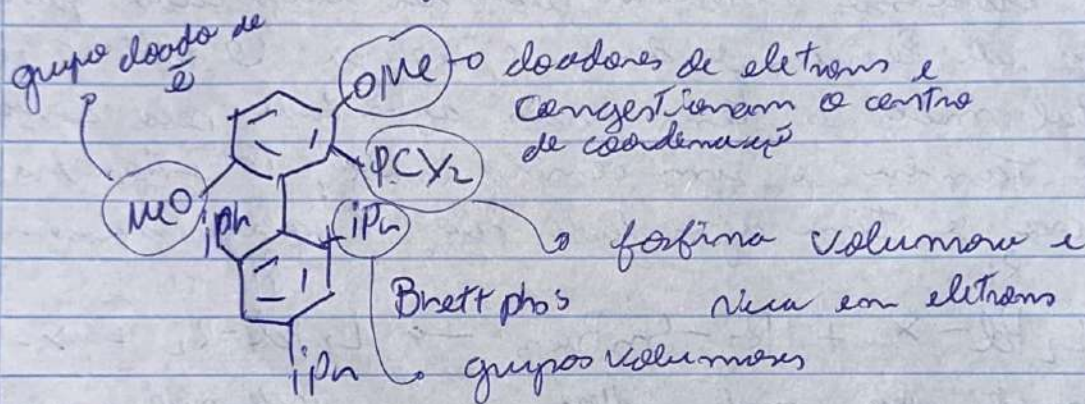 grupo doado de
ē
OMe doadores de eletrons e
congestionam o centro
de coordenação
MeO
PCy₂
iPr
iPr
fosfina volumosa e
rica em eletrons
Brettphos
grupos volumosos
iPr